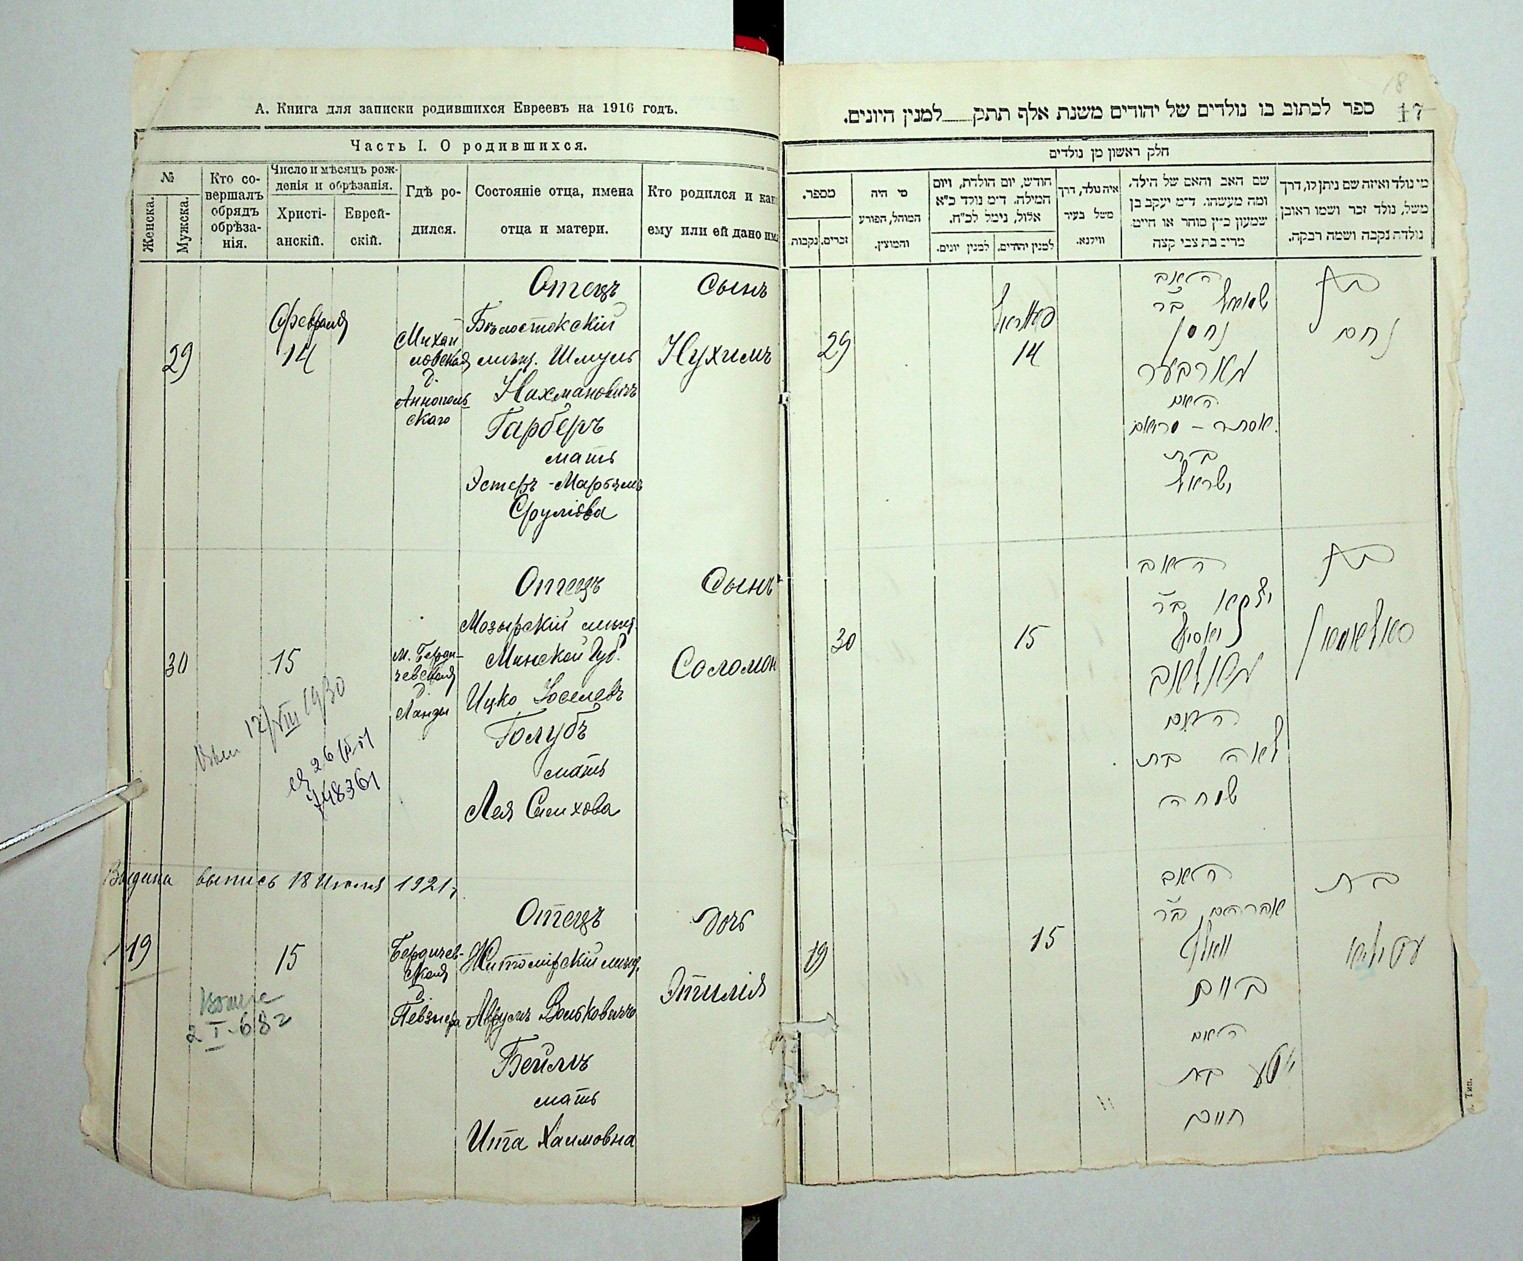 А. Книга для записки родившихся Евреевъ на 1916 годъ.
Часть I. О родившихся.
№
Женска.
Мужска.
Кто со-
вершалъ
обрядъ
обрѣза-
нія.
Число и мѣсяцъ рож-
денія и обрѣзанія.
Христі-
анскій.
Еврей-
скій.
Гдѣ ро-
дился.
Состояніе отца, имена
отца и матери.
Кто родился и как
ему или ей дано им
29
Февраля
14
Михай
ловская
д.
Аннополь
скаго
Отецъ
Бѣлостокскій
мѣщ. Шмуль
Нахмановичъ
Гарберъ
мать
Эстеръ-Маріемъ
Срулівва
Сынъ
Нухимъ
30
15
М. Берди-
чевская
д.
Ланды
Отецъ
Мозырскій мѣщ
Минской Губ.
Ицко Іоселевъ
Голубъ
мать
Лея Симхова
Сынъ
Соломон
12/VIII 1930
748361
Выдана выпись 18 Июля 1921 г.
19
15
Бердичев-
ская
д.
Певзнера
Отецъ
Житомірскій мѣщ.
Аврумъ Вольковичъ
Беймъ
мать
Ита Хаимовна
Дочь
Этилія
копия
2 I-68 г
18
17
ספר לכתוב בו נולדים של יהודים משנת אלף תתק למנין היונים.
חלק ראשון מן נולדים
מספר.
זכרים.
נקבות
מי היה
המוהל, הפורע
והמוצץ.
חודש, יום הולדת, ויום
המילה. ד״מ נולד כ״א
אלול, נימל לכ״ח.
למנין יהודים.
למנין יונים.
איה נולד, דרך
משל בעיר
ווילנא.
שם האב והאם של הילד,
ומה מעשהו. ד״מ יעקב בן
שמעון כ״ץ סוחר או חייט
מרים בת צבי קצה
מי נולד ואיזה שם ניתן לו, דרך
משל, נולד זכר ושמו ראובן
נולדה נקבה ושמה רבקה.
29
14
האב
שמואל ב״ר
נחמן
גארבער
האם
אסתר - מרים
בת
ישראל
בן
נחום
30
15
האב
יצחק ב״ר
יאסעל
גאלוב
האם
לאה בת
שמחה
בן
סאלאמאן
19
15
האב
אברהם ב״ר
וואלף
ביים
האם
איטע בת
חיים
בת
עטיליא
Тип.